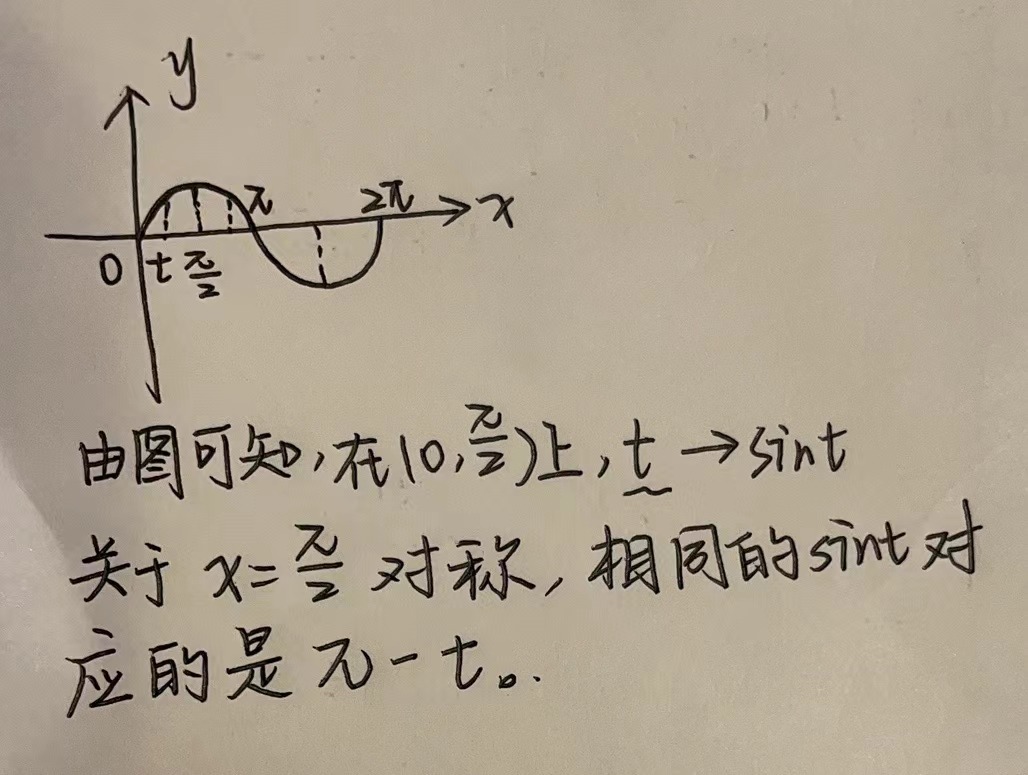 y
π 2π x
0 t π/2
由图可知,在(0,π/2)上,t→sint
关于 x=π/2 对称,相同的sint对
应的是π-t。